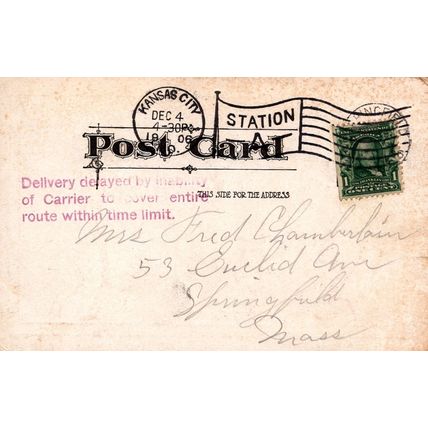 KANSAS CITY
DEC 4
4-30P
1906
STATION
A
Post Card
THIS SIDE FOR THE ADDRESS
Delivery delayed by inability
of Carrier to cover entire
route within time limit.
1
Mrs Fred Chamberlain
53 Euclid Ave
Springfield
Mass